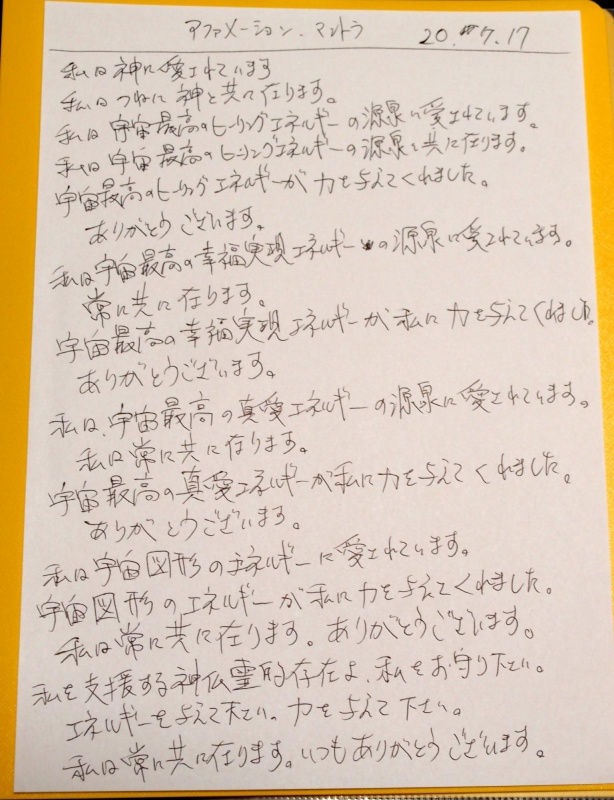 アファメーション、マントラ 20. 7.17
私は神に愛されています
私はつねに神と共に在ります。
私は宇宙最高のヒーリングエネルギーの源泉に愛されています。
私は宇宙最高のヒーリングエネルギーの源泉と共に在ります。
宇宙最高のヒーリングエネルギーが力を与えてくれました。
ありがとうございます。
私は宇宙最高の幸福実現エネルギーの源泉に愛されています。
常に共に在ります。
宇宙最高の幸福実現エネルギーが私に力を与えてくれました。
ありがとうございます。
私は、宇宙最高の真愛エネルギーの源泉に愛されています。
私は常に共に在ります。
宇宙最高の真愛エネルギーが私に力を与えてくれました。
ありがとうございます。
私は宇宙図形のエネルギーに愛されています。
宇宙図形のエネルギーが私に力を与えてくれました。
私は常に共に在ります。ありがとうございます。
私を支援する神仏霊的存在よ、私をお守り下さい。
エネルギーを与えて下さい。力を与えて下さい。
私は常に共に在ります。いつもありがとうございます。